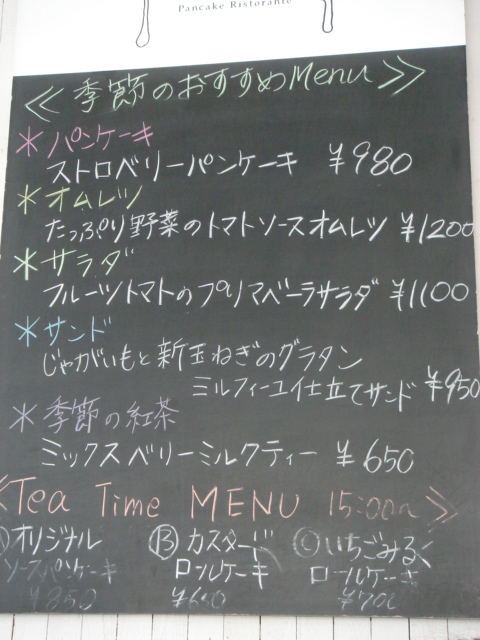 Pancake Ristorante
≪季節のおすすめMenu≫
＊パンケーキ
ストロベリーパンケーキ ￥980
＊オムレツ
たっぷり野菜のトマトソースオムレツ ￥1200
＊サラダ
フルーツトマトのプリマベーラサラダ ￥1100
＊サンド
じゃがいもと新玉ねぎのグラタン
ミルフィーユ仕立てサンド ￥950
＊季節の紅茶
ミックスベリーミルクティー ￥650
≪Tea Time MENU 15:00〜≫
オリジナル Ⓑカスタード Ⓒいちごみるく
ソースパンケーキ ロールケーキ ロールケーキ
￥850 ￥650 ￥700